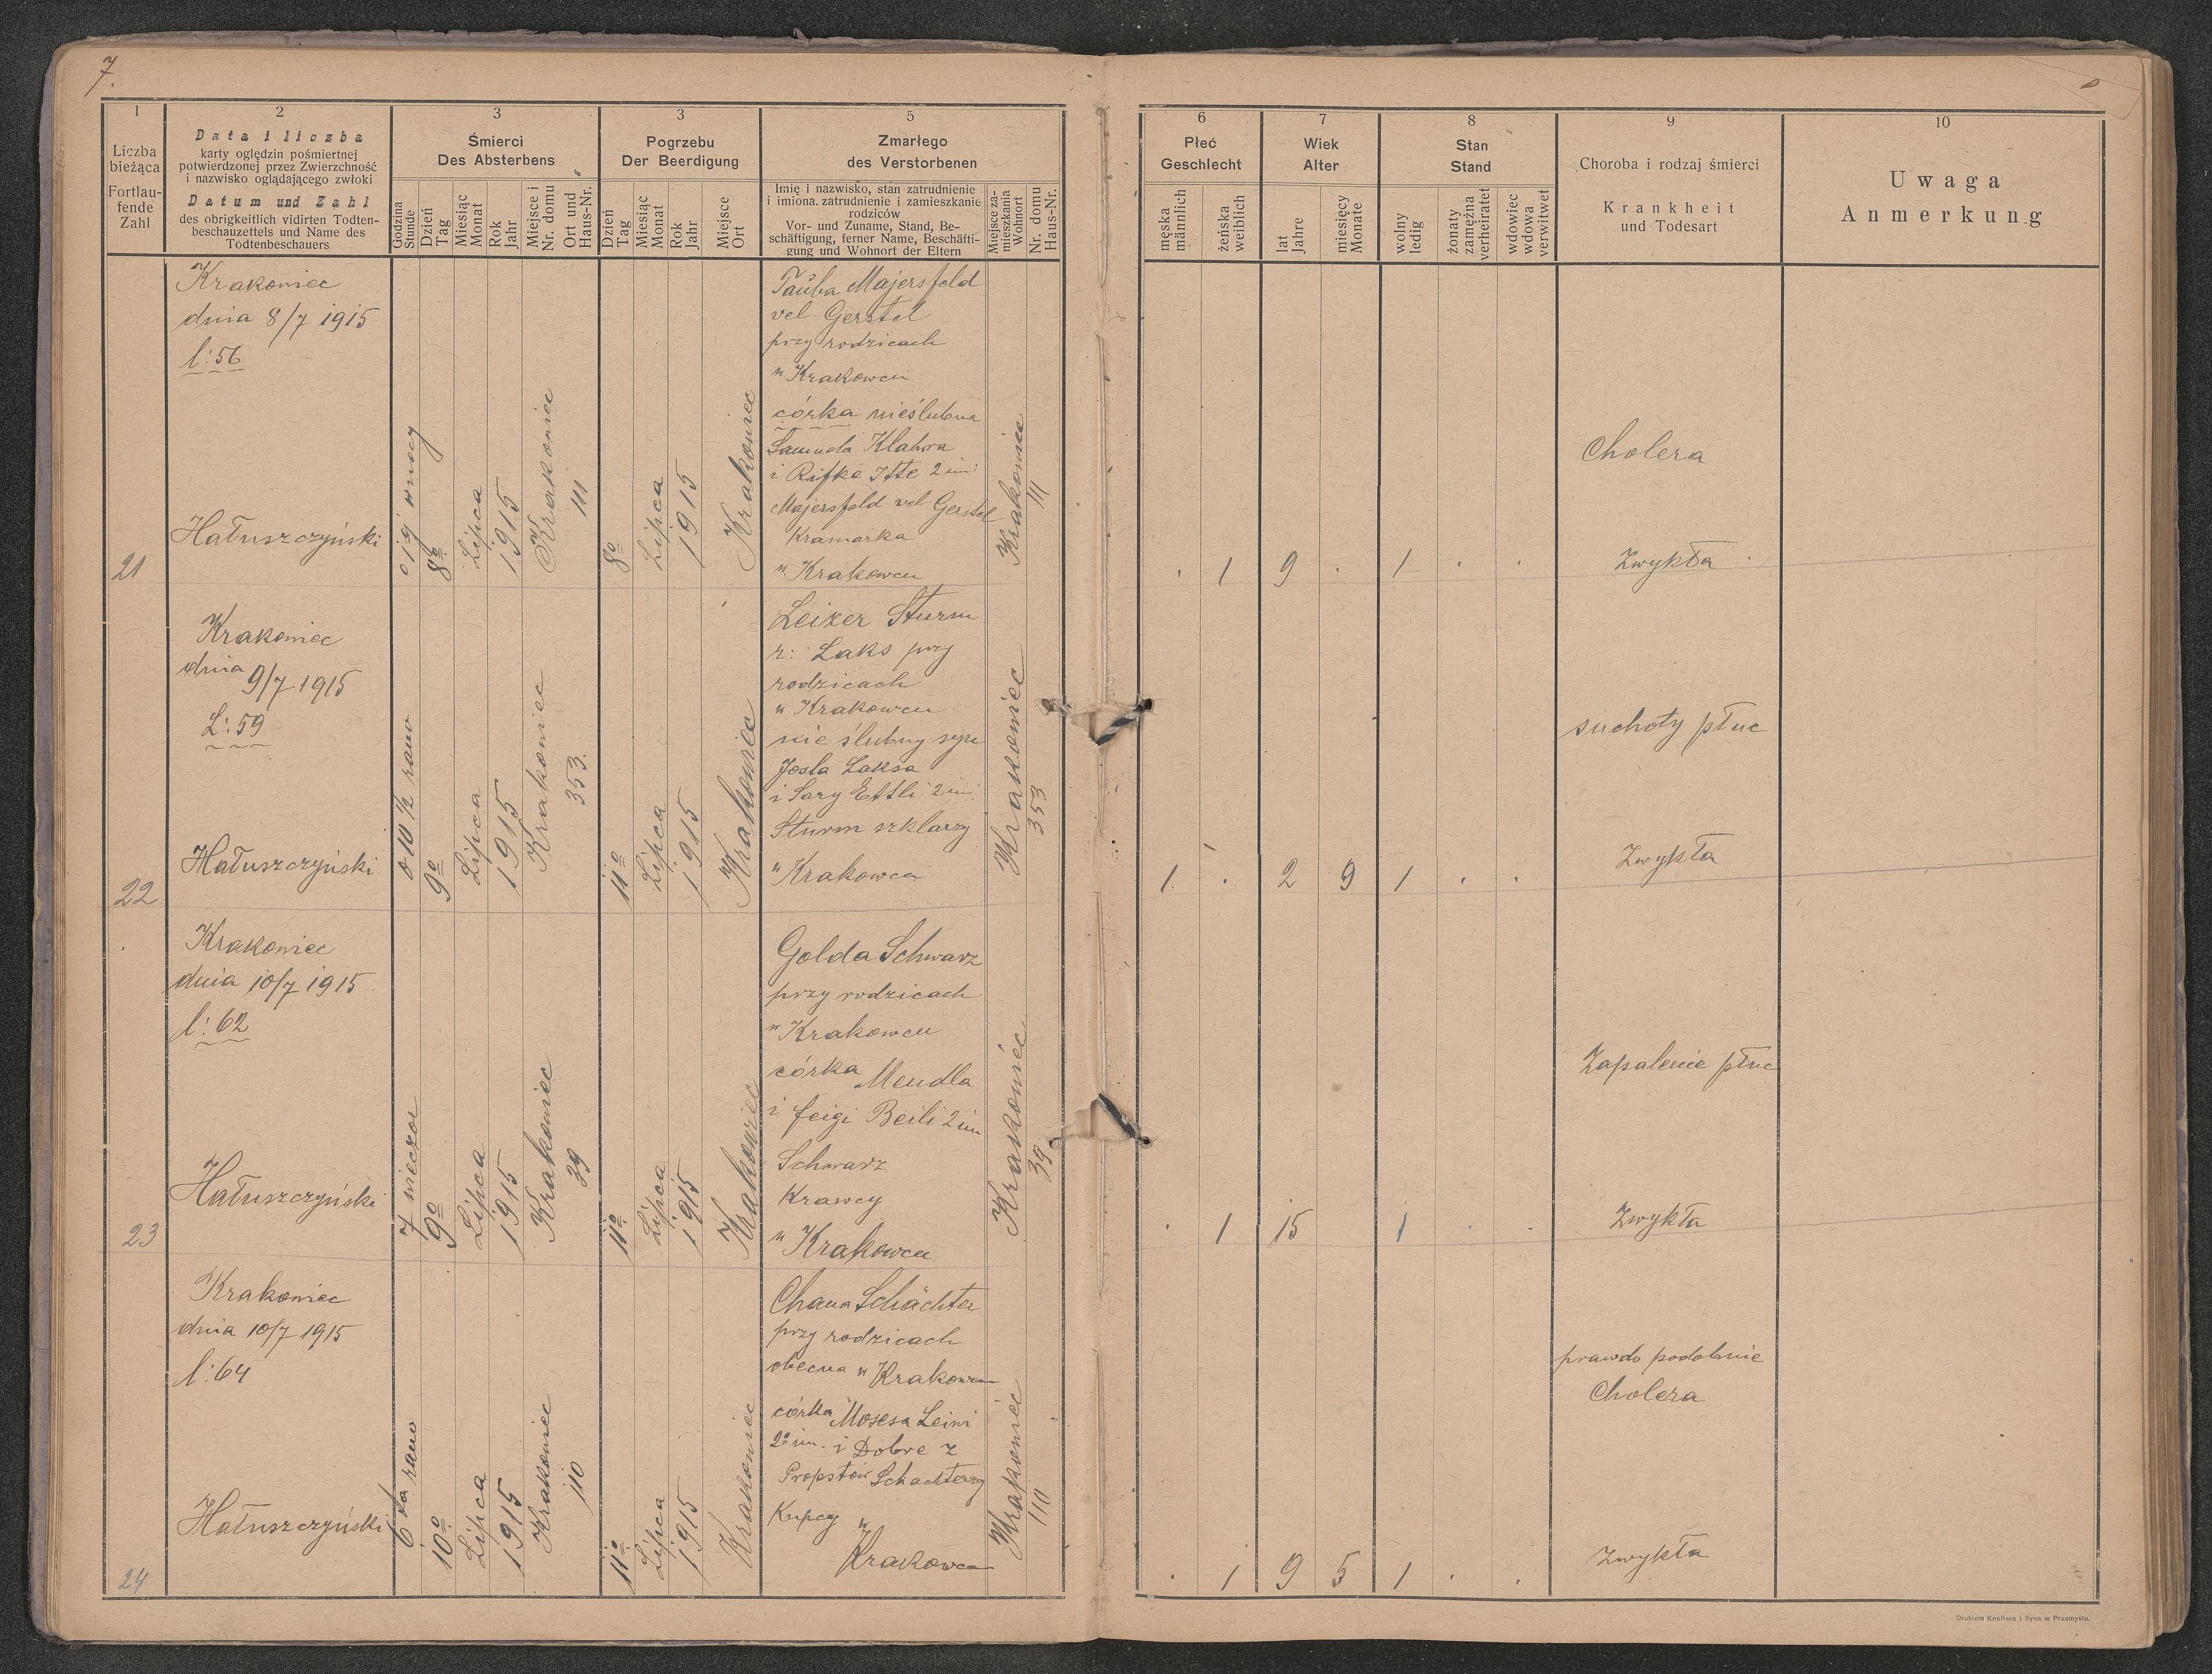 7.
1
Liczba
bieżąca
Fortlau-
fende
Zahl
2
Data i liczba
karty oględzin pośmiertnej
potwierdzonej przez Zwierzchność
i nazwisko oglądającego zwłoki
Datum und Zahl
des obrigkeitlich vidirten Todten-
beschauzettels und Name des
Todtenbeschauers
3
Śmierci
Des Absterbens
Godzina
Stunde
Dzień
Tag
Miesiąc
Monat
Rok
Jahr
Miejsce i
Nr. domu
Ort und
Haus-Nr.
3
Pogrzebu
Der Beerdigung
Dzień
Tag
Miesiąc
Monat
Rok
Jahr
Miejsce
Ort
5
Zmarłego
des Verstorbenen
Imię i nazwisko, stan zatrudnienie
i imiona. zatrudnienie i zamieszkanie
rodziców
Vor- und Zuname, Stand, Be-
schäftigung, ferner Name, Beschäfti-
gung und Wohnort der Eltern
Miejsce za-
mieszkania
Wohnort
Nr. domu
Haus-Nr.
6
Płeć
Geschlecht
męska
männlich
żeńska
weiblich
7
Wiek
Alter
lat
Jahre
miesięcy
Monate
8
Stan
Stand
wolny
ledig
żonaty
zamężna
verheiratet
wdowiec
wdowa
verwitwet
9
Choroba i rodzaj śmierci
Krankheit
und Todesart
10
Uwaga
Anmerkung
21
Krakowiec
dnia 8/7 1915
l: 56
Hałuszczyński
w nocy
8º
Lipca
1915
Krakowiec
111
8º
Lipca
1915
Krakowiec
Tauba Majersfeld
vel Gerstel
przy rodzicach
w Krakowcu
córka nieślubna
Samuela Klahra
i Rifke Itte 2 im:
Majersfeld vel Gerstel
Kramarka
w Krakowcu
Krakowiec
111
. 1 9 . 1 . .
Cholera
Zwykła
22
Krakowiec
dnia 9/7 1915
L: 59
Hałuszczyński
o 10 1/2 rano
9º
Lipca
1915
Krakowiec
353.
11º
Lipca
1915
Krakowiec
Leizer Sturm
r: Laks przy
rodzicach
w Krakowcu
nie ślubny syn
Josla Laksa
i Sary Ettli 2 im
Sturm szklarzy
w Krakowcu
Krakowiec
353
1 . 2 9 1 . .
suchoty płuc
Zwykła
23
Krakowiec
dnia 10/7 1915
l: 62
Hałuszczyński
7 wieczor
9º
Lipca
1915
Krakowiec
39
11º
Lipca
1915
Krakowiec
Golda Schwarz
przy rodzicach
w Krakowcu
córka Mendla
i feigi Beili 2 im
Schwarz
Krawcy
w Krakowcu
Krakowiec
39
. 1 15 1 . .
Zapalenie płuc
Zwykła
24
Krakowiec
dnia 10/7 1915
l: 64
Hałuszczyński
rano
10º
Lipca
1915
Krakowiec
110
11º
Lipca
1915
Krakowiec
Chana Schächter
przy rodzicach
obecna w Krakowcu
córka Mosesa Leiwi
2º im. i Dobre z
Propstów Schachterzy
Kupcy w
Krakowcu
Krakowiec
110
. 1 9 5 1 . .
prawdo podobnie
Cholera
Zwykła
Drukiem Knollera i Syna w Przemyślu.